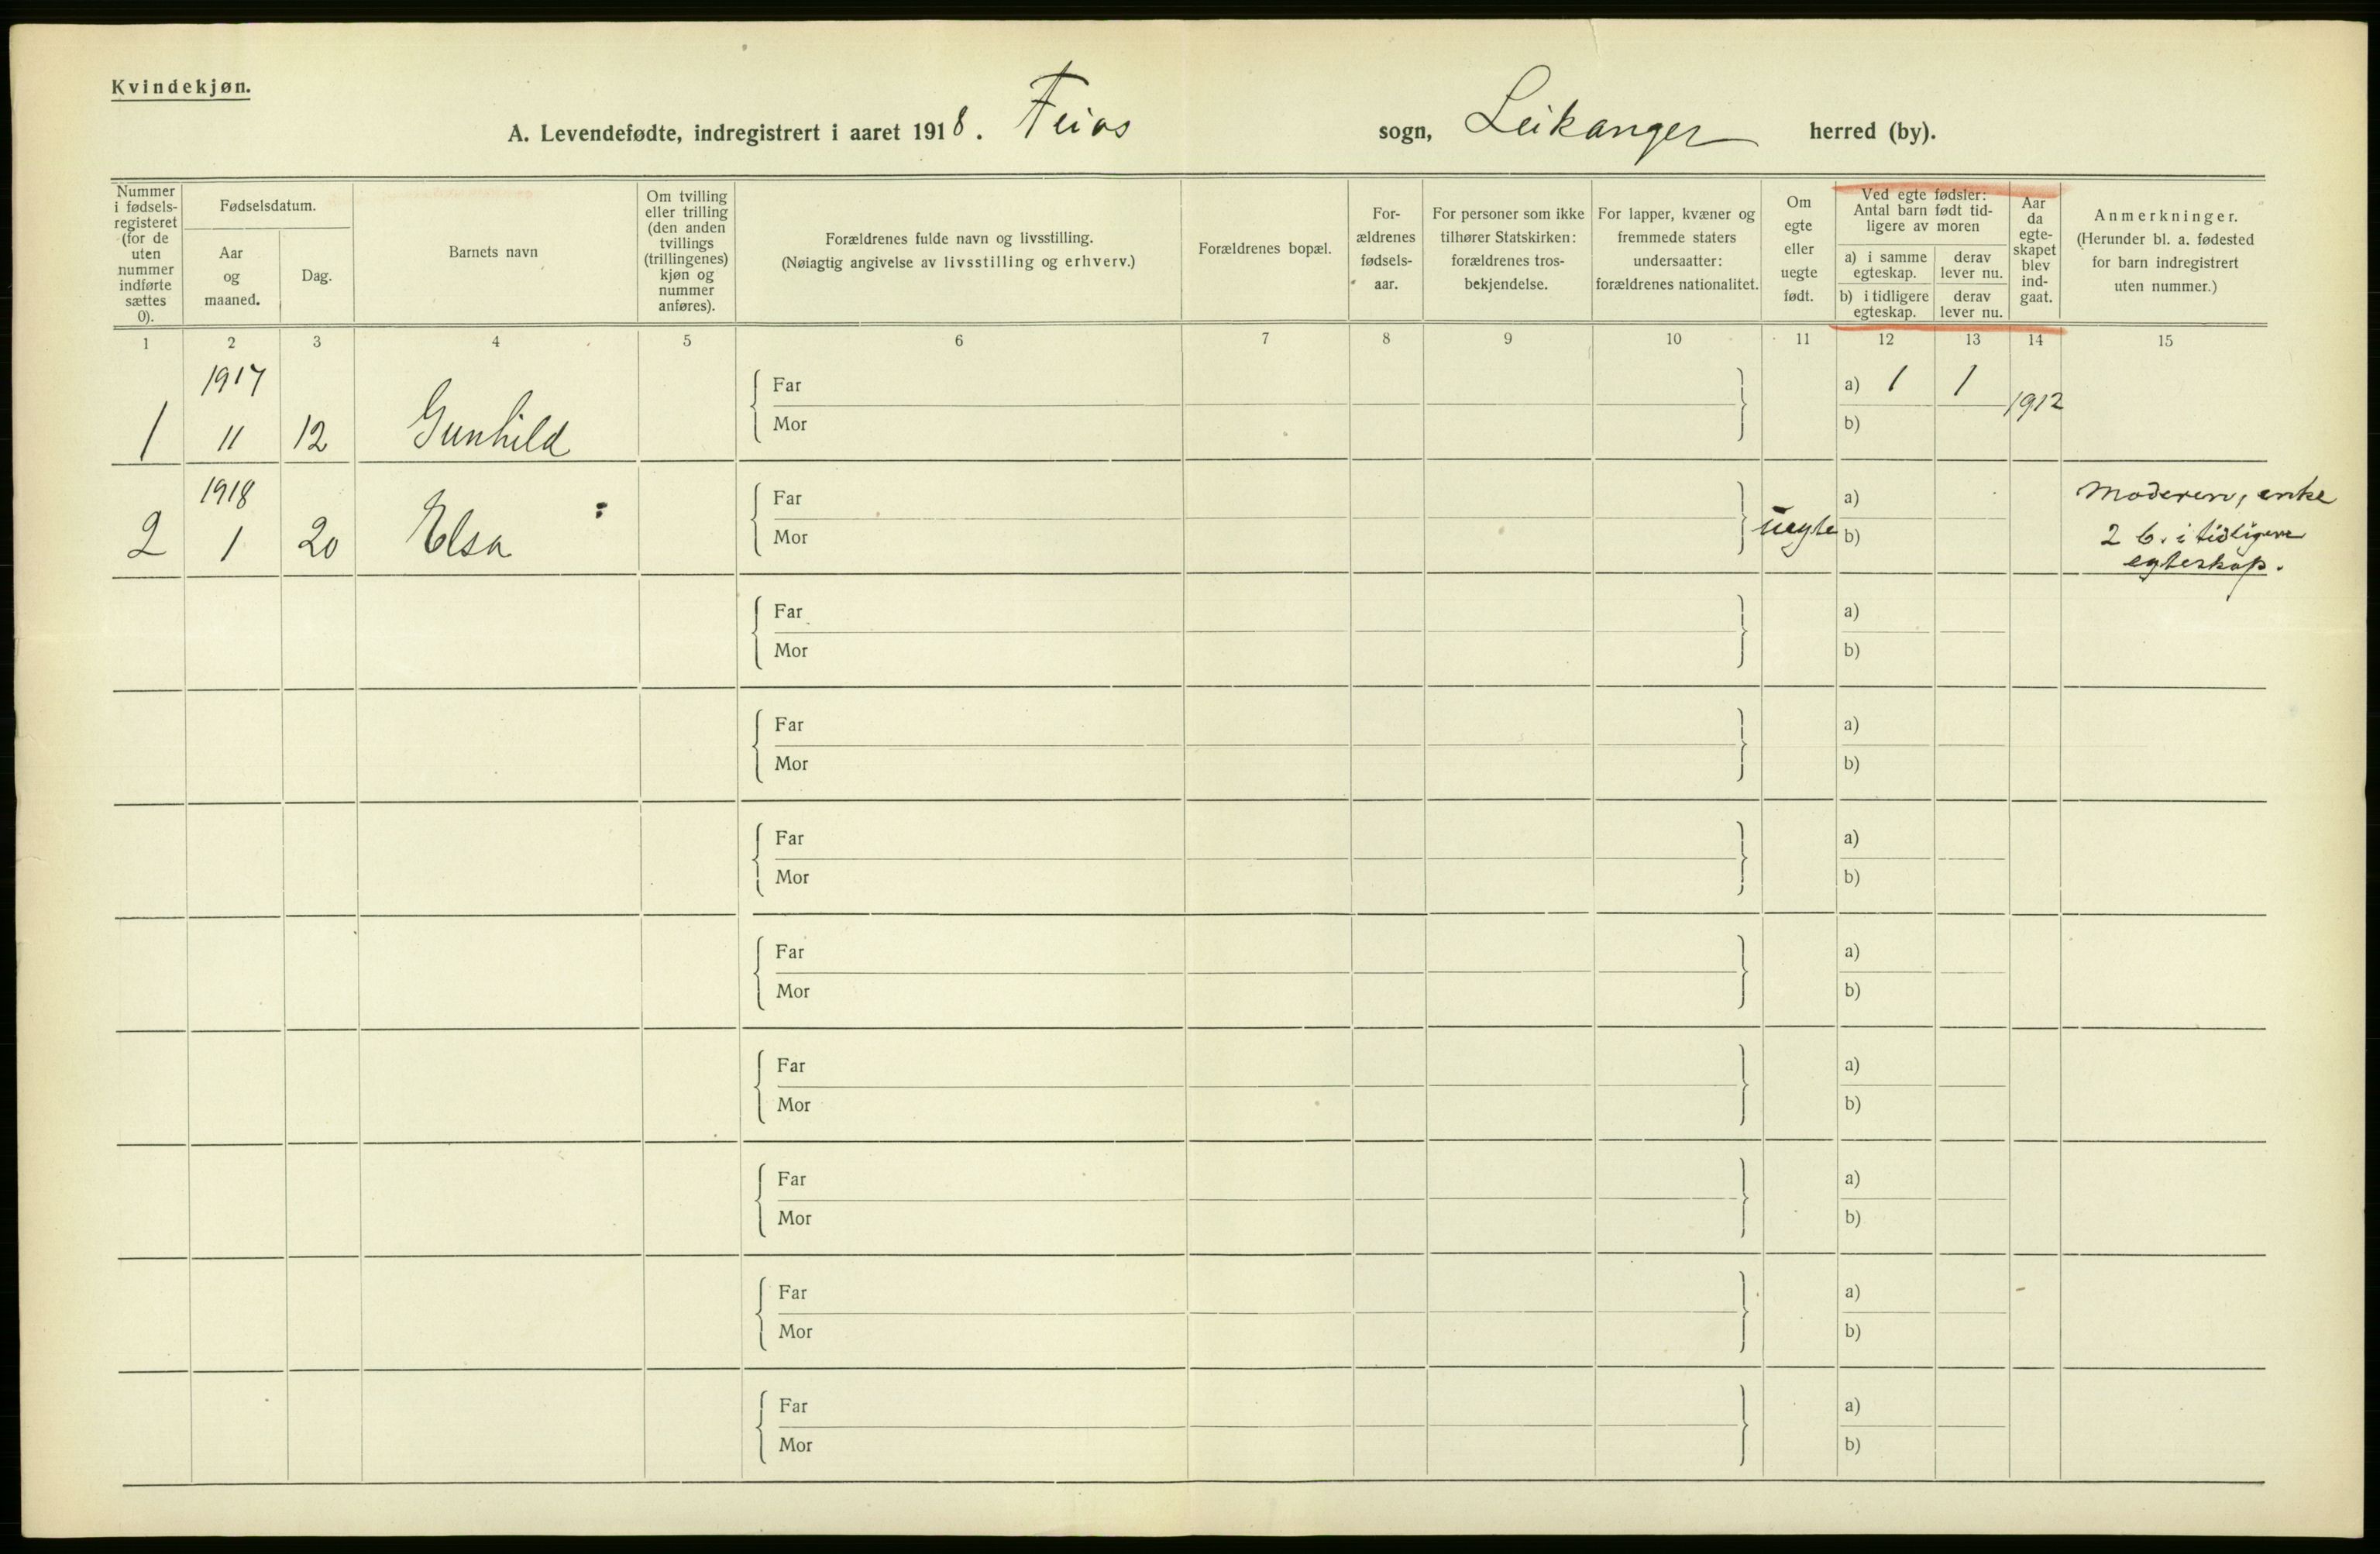 Kvindekjøn.
A. Levendefødte, indregistrert i aaret 1918. Feios sogn, Leikanger herred (by).
Nummer i fødsels-registeret (for de uten nummer indførte sættes 0).
Fødselsdatum.
Aar og maaned.
Dag.
Barnets navn
Om tvilling eller trilling (den anden tvillings (trillingenes) kjøn og nummer anføres).
Forældrenes fulde navn og livsstilling.
(Nøiagtig angivelse av livsstilling og erhverv.)
Forældrenes bopæl.
For-ældrenes fødsels-aar.
For personer som ikke tilhører Statskirken: forældrenes tros-bekjendelse.
For lapper, kvæner og fremmede staters undersaatter: forældrenes nationalitet.
Om egte eller uegte født.
Ved egte fødsler:
Antal barn født tid-ligere av moren
a) i samme egteskap.
derav lever nu.
b) i tidligere egteskap.
derav lever nu.
Aar da egte-skapet blev ind-gaat.
Anmerkninger.
(Herunder bl. a. fødested for barn indregistrert uten nummer.)
1 2 3 4 5 6 7 8 9 10 11 12 13 14 15
1917
Far a) 1 1
1912
1 11 12 Gunhild Mor b)
1918
Far a) Moderen, enke
2 1 20 Elsa Mor uegte b) 2 b. i tidligere
egteskap.
Far a)
Mor b)
Far a)
Mor b)
Far a)
Mor b)
Far a)
Mor b)
Far a)
Mor b)
Far a)
Mor b)
Far a)
Mor b)
Far a)
Mor b)